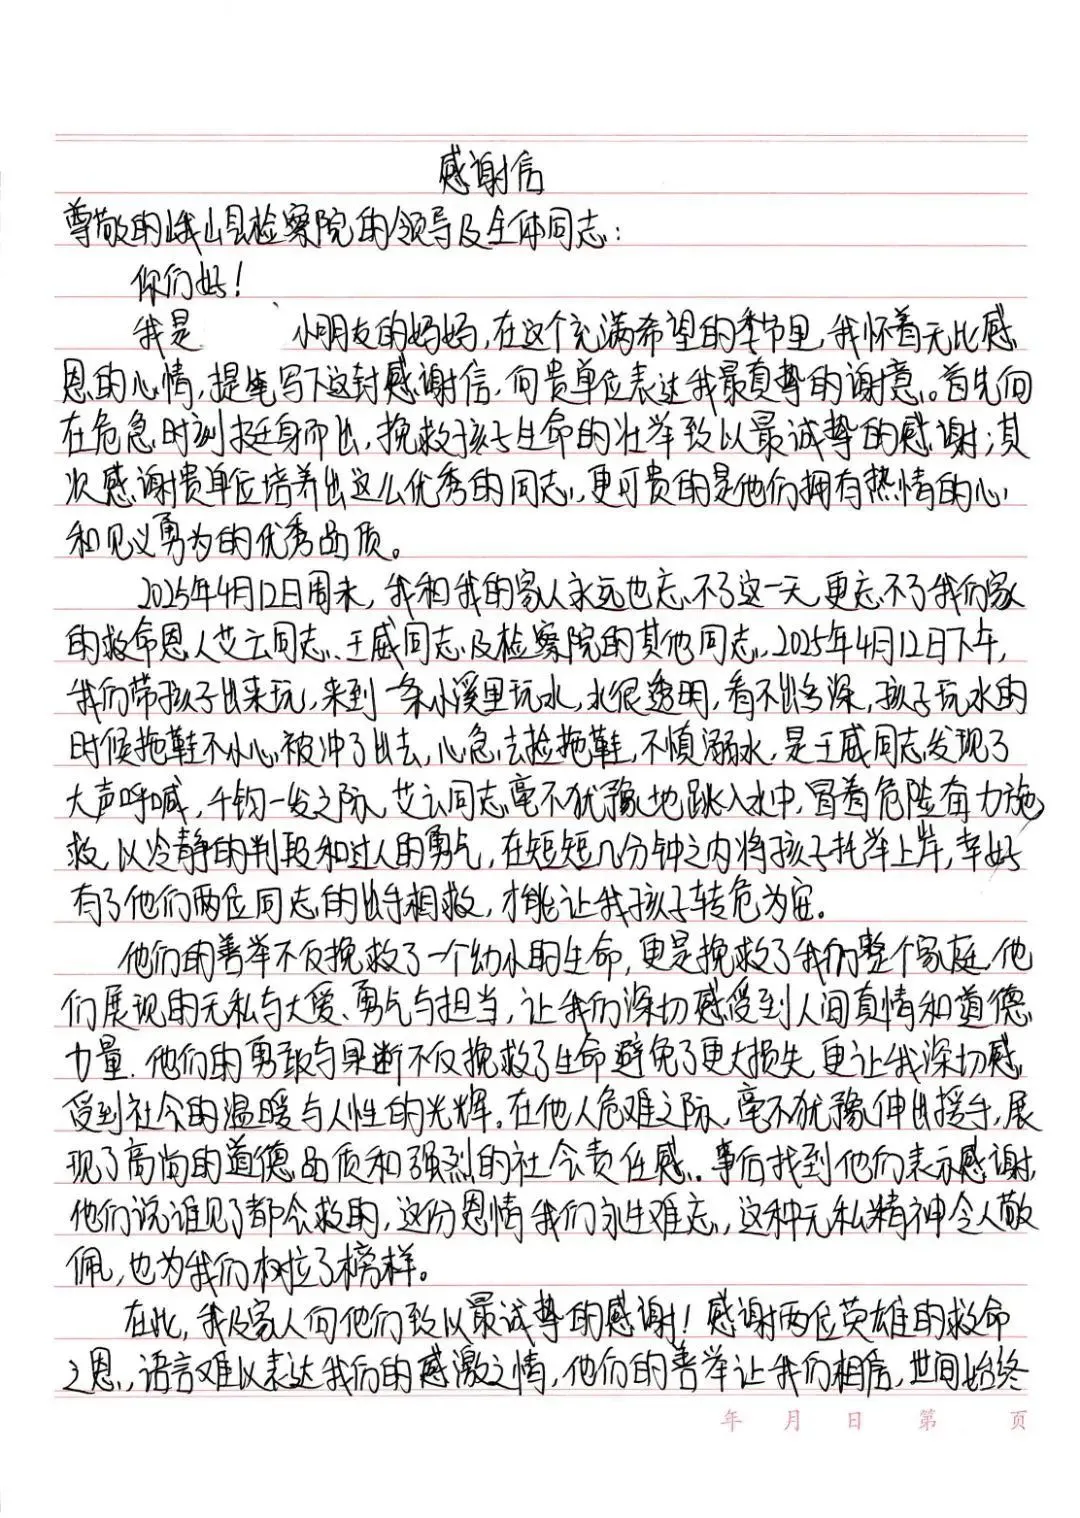 感谢信
尊敬的峨山县检察院的领导及全体同志：
你们好！
我是 小朋友的妈妈，在这个充满希望的季节里，我怀着无比感
恩的心情，提笔写下这封感谢信，向贵单位表达我最真挚的谢意。首先向
在危急时刻挺身而出，挽救孩子生命的壮举致以最诚挚的感谢；其
次感谢贵单位培养出这么优秀的同志，更可贵的是他们拥有热情的心
和见义勇为的优秀品质。
2025年4月12日周末，我和我的家人永远也忘不了这一天，更忘不了我们家
的救命恩人艾云同志、王威同志及检察院的其他同志，2025年4月12日下午，
我们带孩子出来玩，来到一条小溪里玩水，水很透明，看不出多深，孩子玩水的
时候拖鞋不小心被冲了出去，心急去捡拖鞋，不慎溺水，是王威同志发现了
大声呼喊，千钧一发之际，艾云同志毫不犹豫地跳入水中，冒着危险奋力施
救，以冷静的判段和过人的勇气，在短短几分钟之内将孩子托举上岸，幸好
有了他们两位同志的出手相救，才能让我孩子转危为安。
他们的善举不仅挽救了一个幼小的生命，更是挽救了我们整个家庭，他
们展现的无私与大爱、勇气与担当，让我们深切感受到人间真情和道德
力量．他们的勇敢与果断不仅挽救了生命避免了更大损失，更让我深切感
受到社会的温暖与人性的光辉．在他人危难之际，毫不犹豫伸出援手，展
现了高尚的道德品质和强烈的社会责任感．事后找到他们表示感谢，
他们说谁见了都会救的，这份恩情我们永生难忘，这种无私精神令人敬
佩，也为我们树立了榜样。
在此，我及家人向他们致以最诚挚的感谢！感谢两位英雄的救命
之恩，语言难以表达我们的感激之情，他们的善举让我们相信，世间始终
年 月 日 第 页